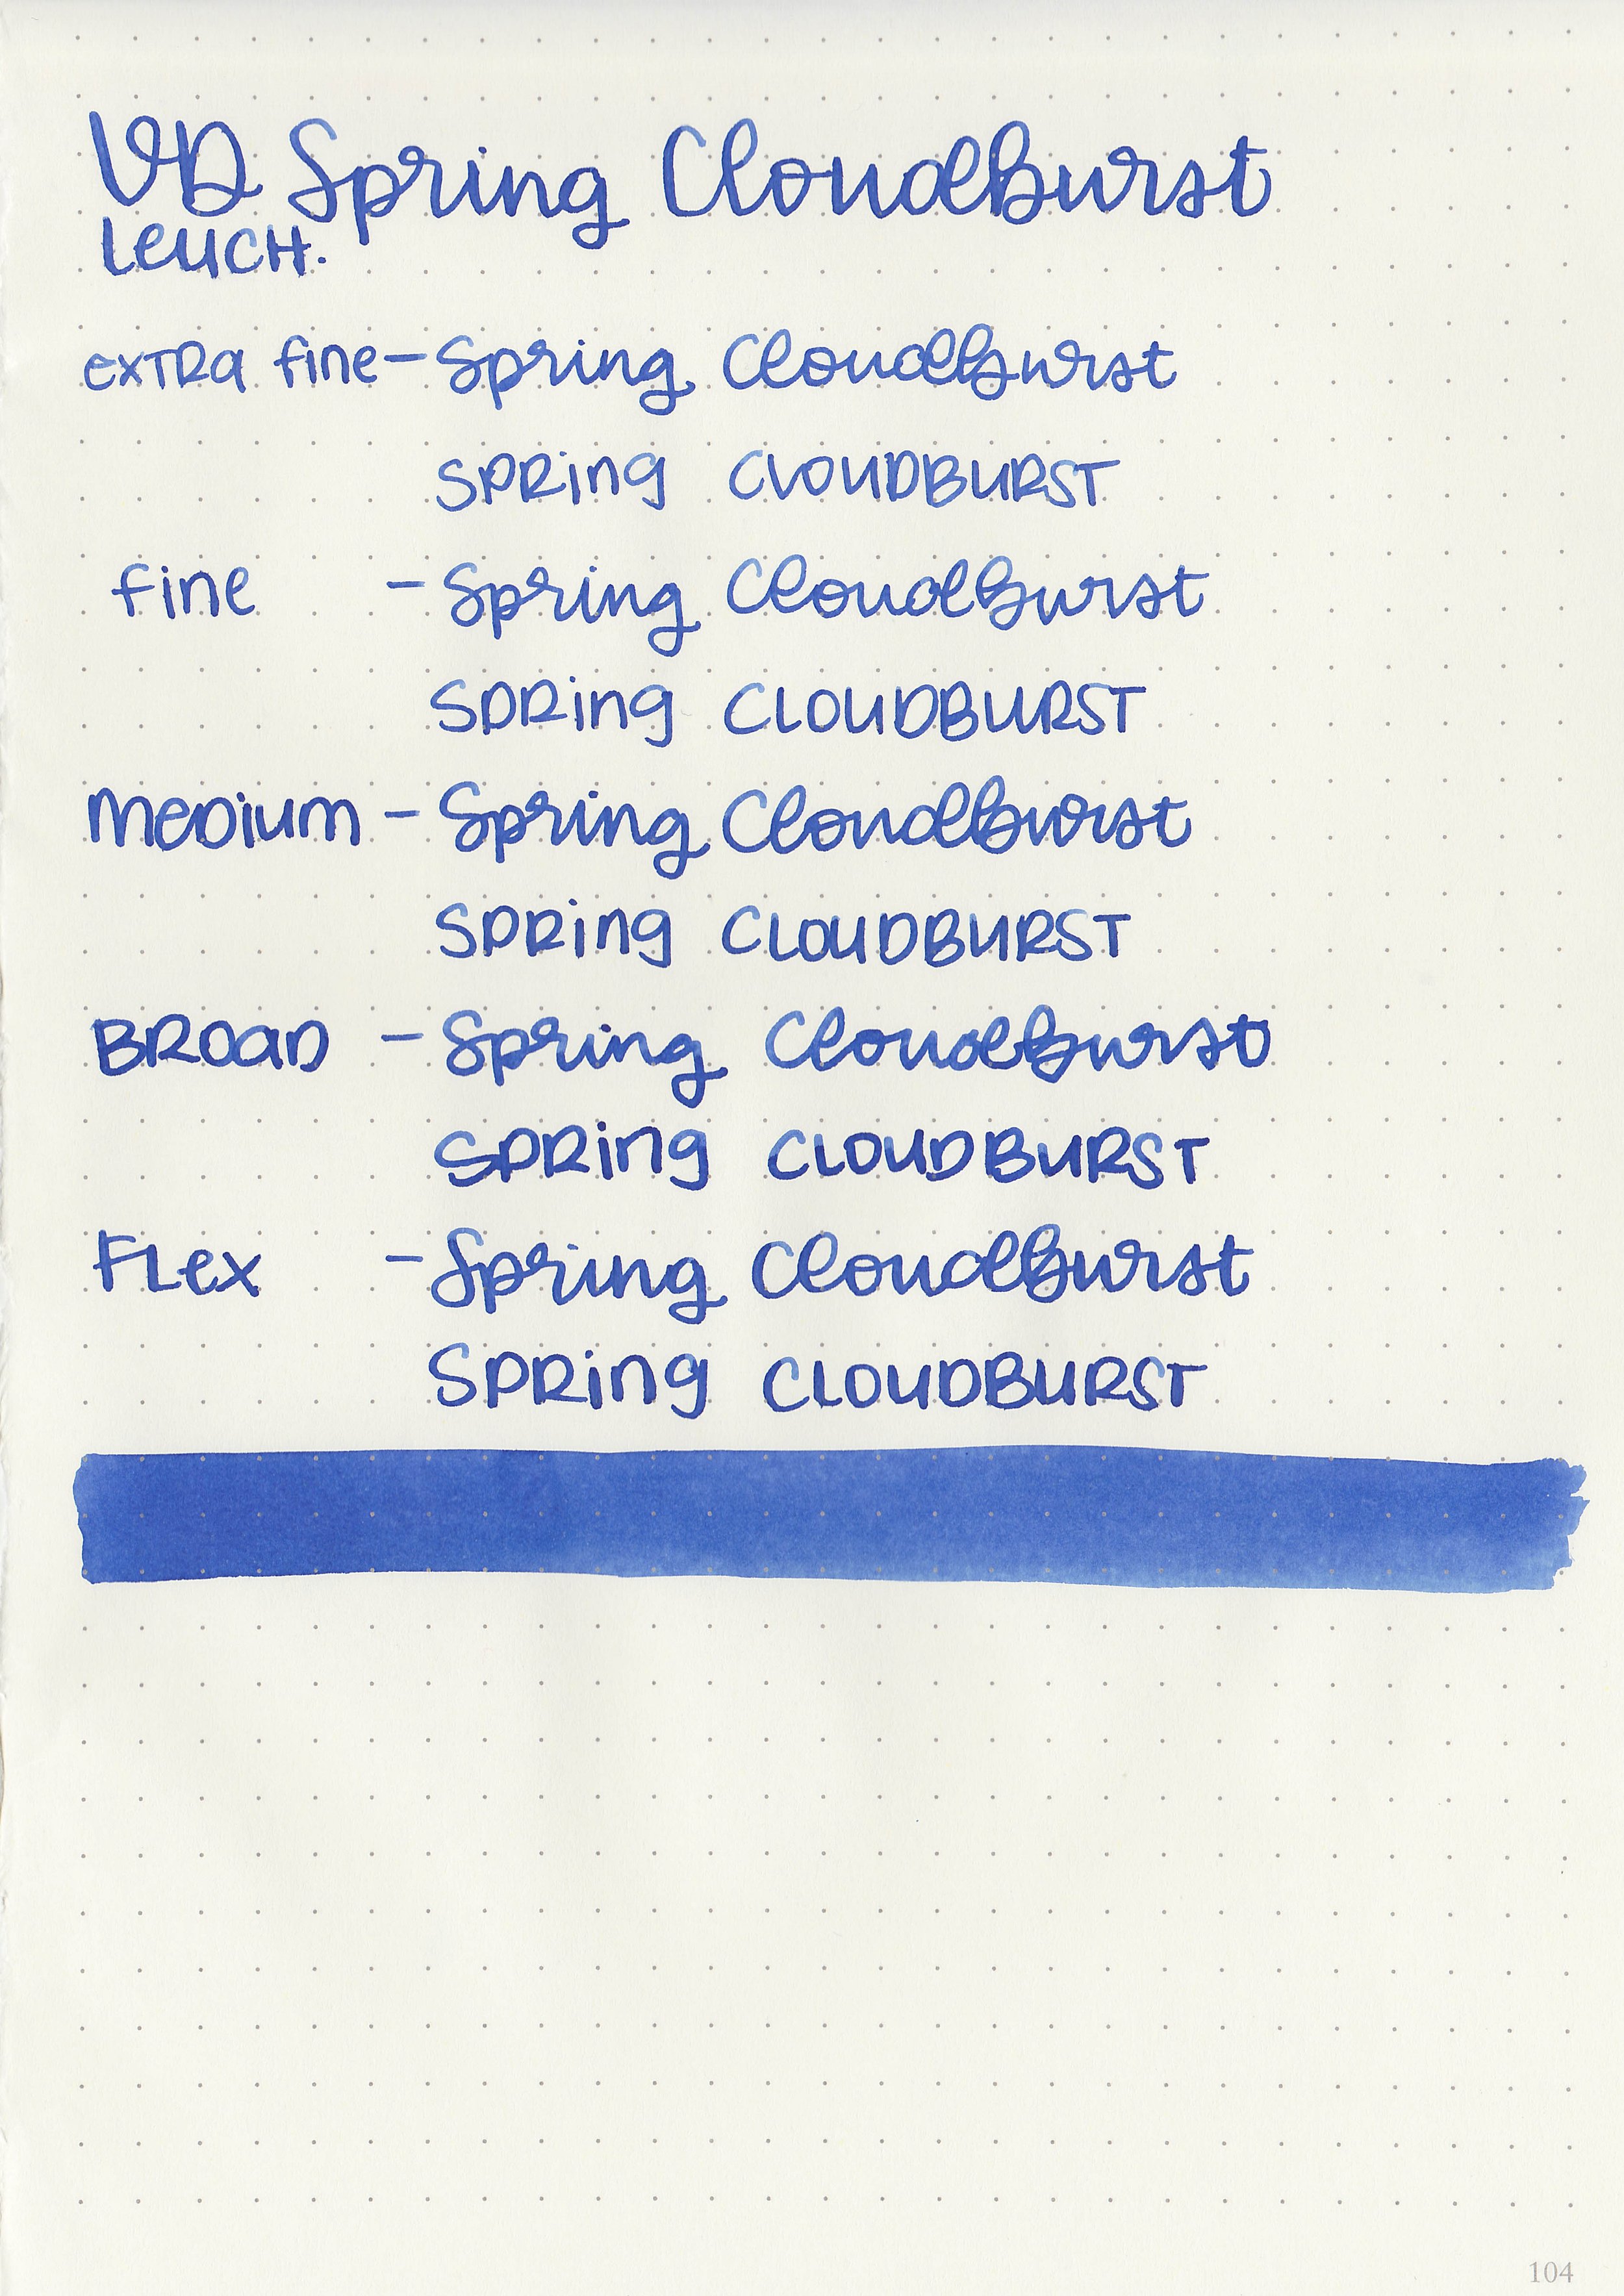 VD Spring Cloudburst
Leuch.
extra fine - Spring Cloudburst
SPRing CLOUDBURST
fine - Spring Cloudburst
SPRing CLOUDBURST
Medium - Spring Cloudburst
SPRing CLOUDBURST
BROAD - Spring Cloudburst
SPRing CLOUDBURST
FLex - Spring Cloudburst
SPRing CLOUDBURST
104